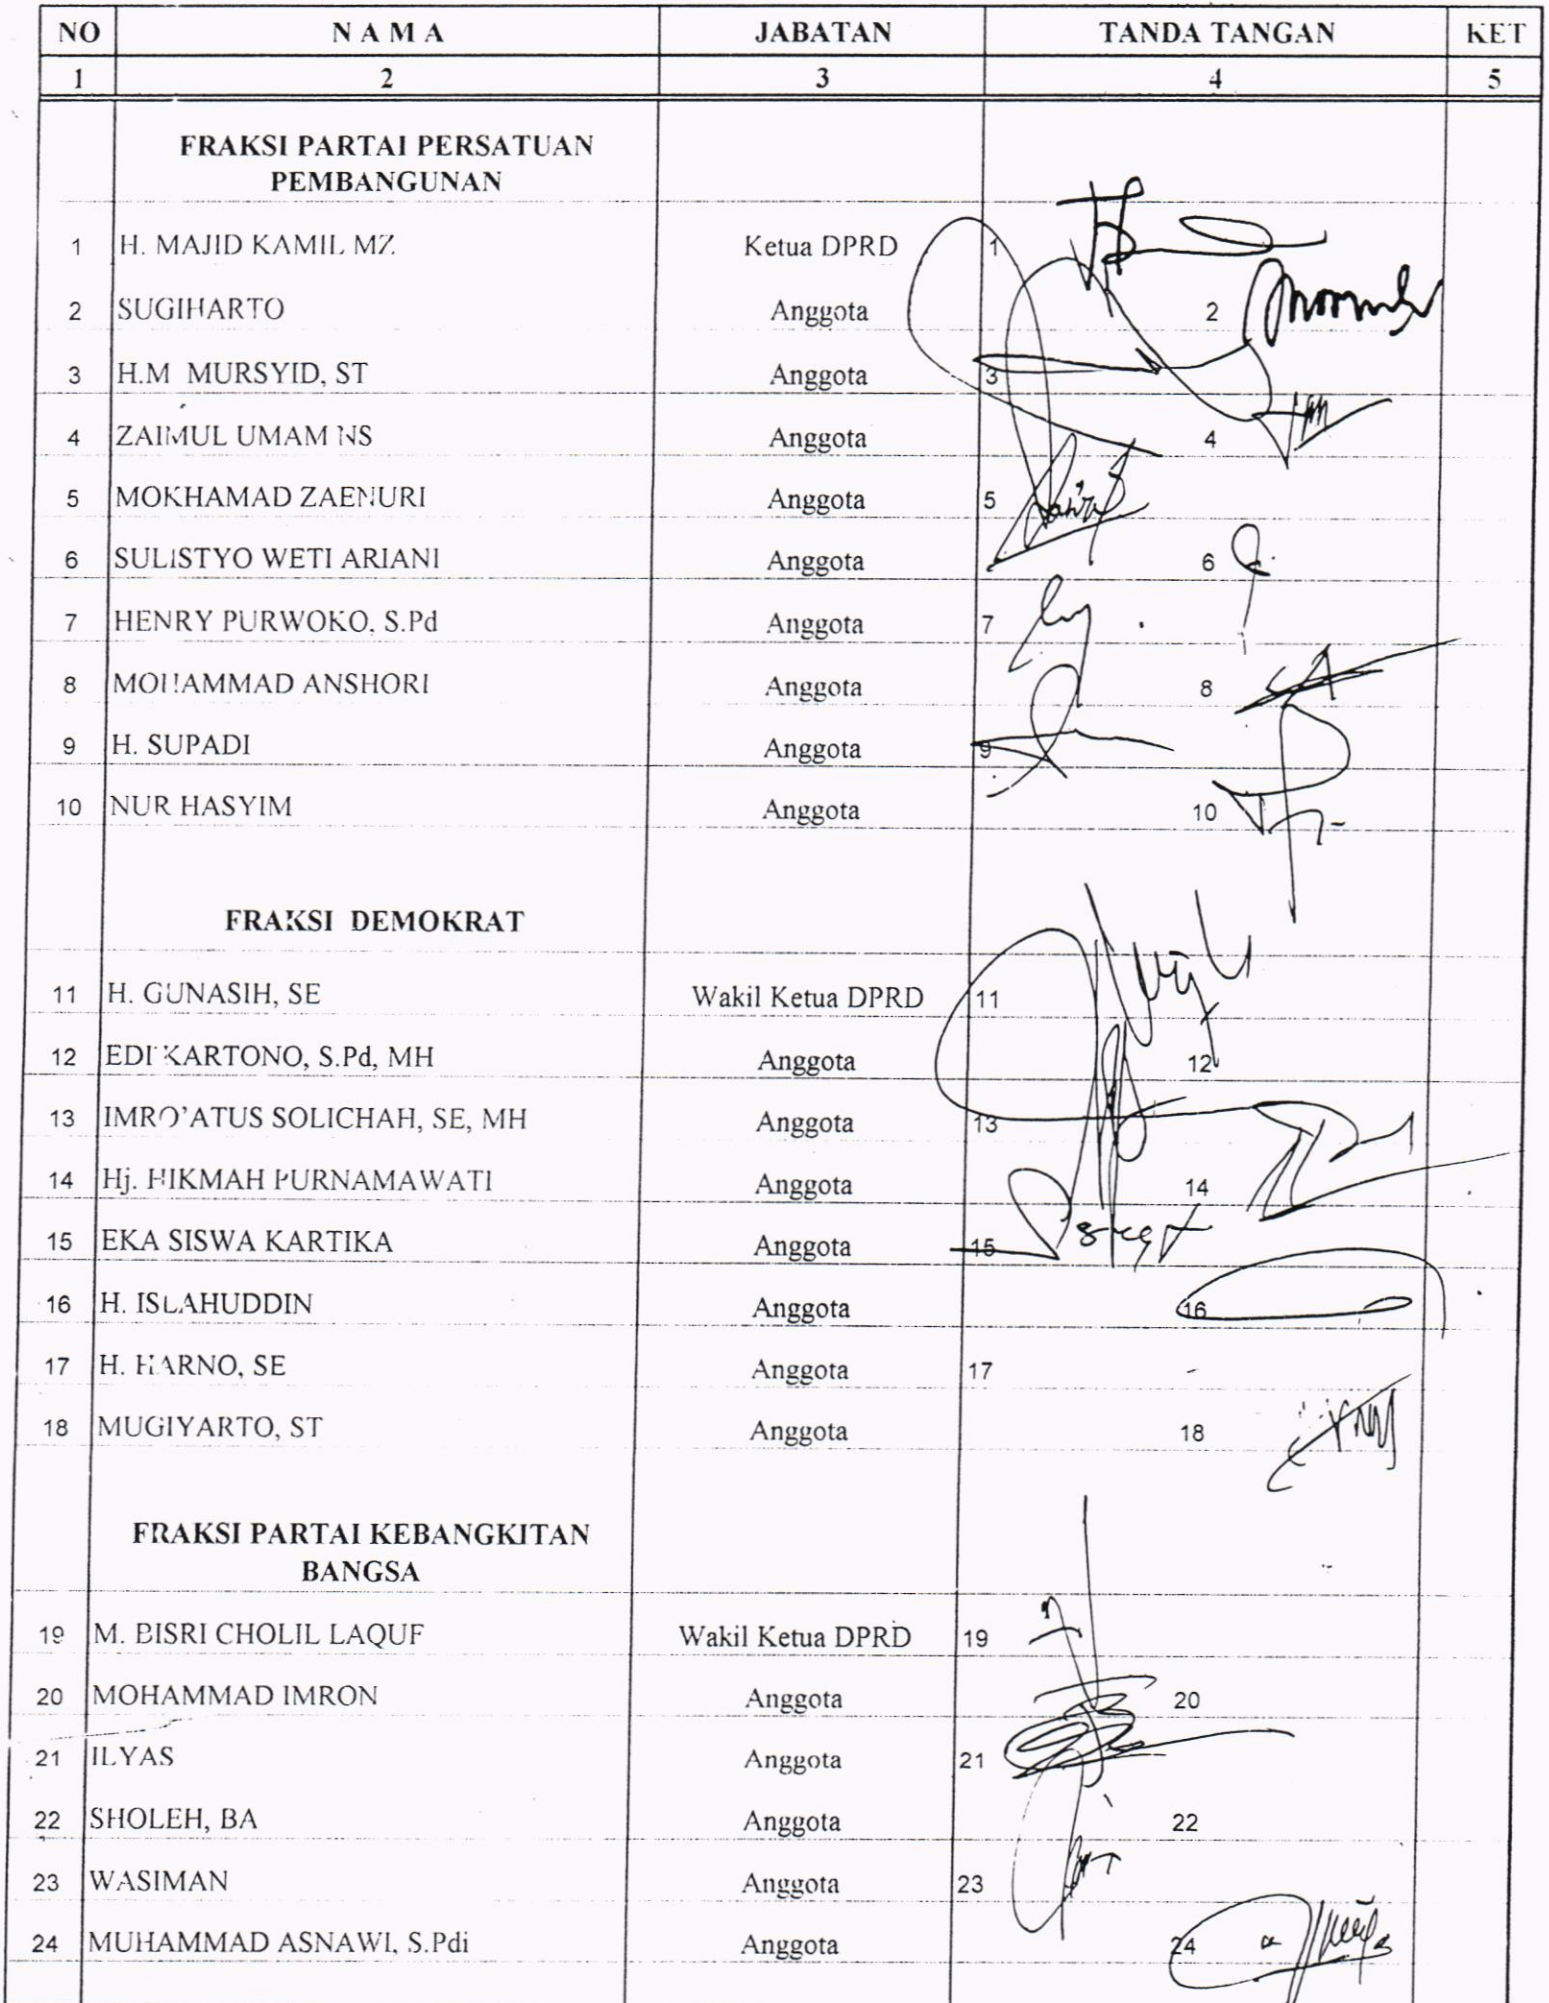 NO N A M A JABATAN TANDA TANGAN KET
1 2 3 4 5
FRAKSI PARTAI PERSATUAN
PEMBANGUNAN
1 H. MAJID KAMIL MZ Ketua DPRD 1
2 SUGIHARTO Anggota 2
3 H.M MURSYID, ST Anggota 3
4 ZAIMUL UMAM NS Anggota 4
5 MOKHAMAD ZAENURI Anggota 5
6 SULISTYO WETI ARIANI Anggota 6
7 HENRY PURWOKO, S.Pd Anggota 7
8 MOHAMMAD ANSHORI Anggota 8
9 H. SUPADI Anggota 9
10 NUR HASYIM Anggota 10
FRAKSI DEMOKRAT
11 H. GUNASIH, SE Wakil Ketua DPRD 11
12 EDI KARTONO, S.Pd, MH Anggota 12
13 IMRO'ATUS SOLICHAH, SE, MH Anggota 13
14 Hj. HIKMAH PURNAMAWATI Anggota 14
15 EKA SISWA KARTIKA Anggota 15
16 H. ISLAHUDDIN Anggota 16
17 H. HARNO, SE Anggota 17 -
18 MUGIYARTO, ST Anggota 18
FRAKSI PARTAI KEBANGKITAN
BANGSA
19 M. BISRI CHOLIL LAQUF Wakil Ketua DPRD 19
20 MOHAMMAD IMRON Anggota 20
21 ILYAS Anggota 21
22 SHOLEH, BA Anggota 22
23 WASIMAN Anggota 23
24 MUHAMMAD ASNAWI, S.Pdi Anggota 24